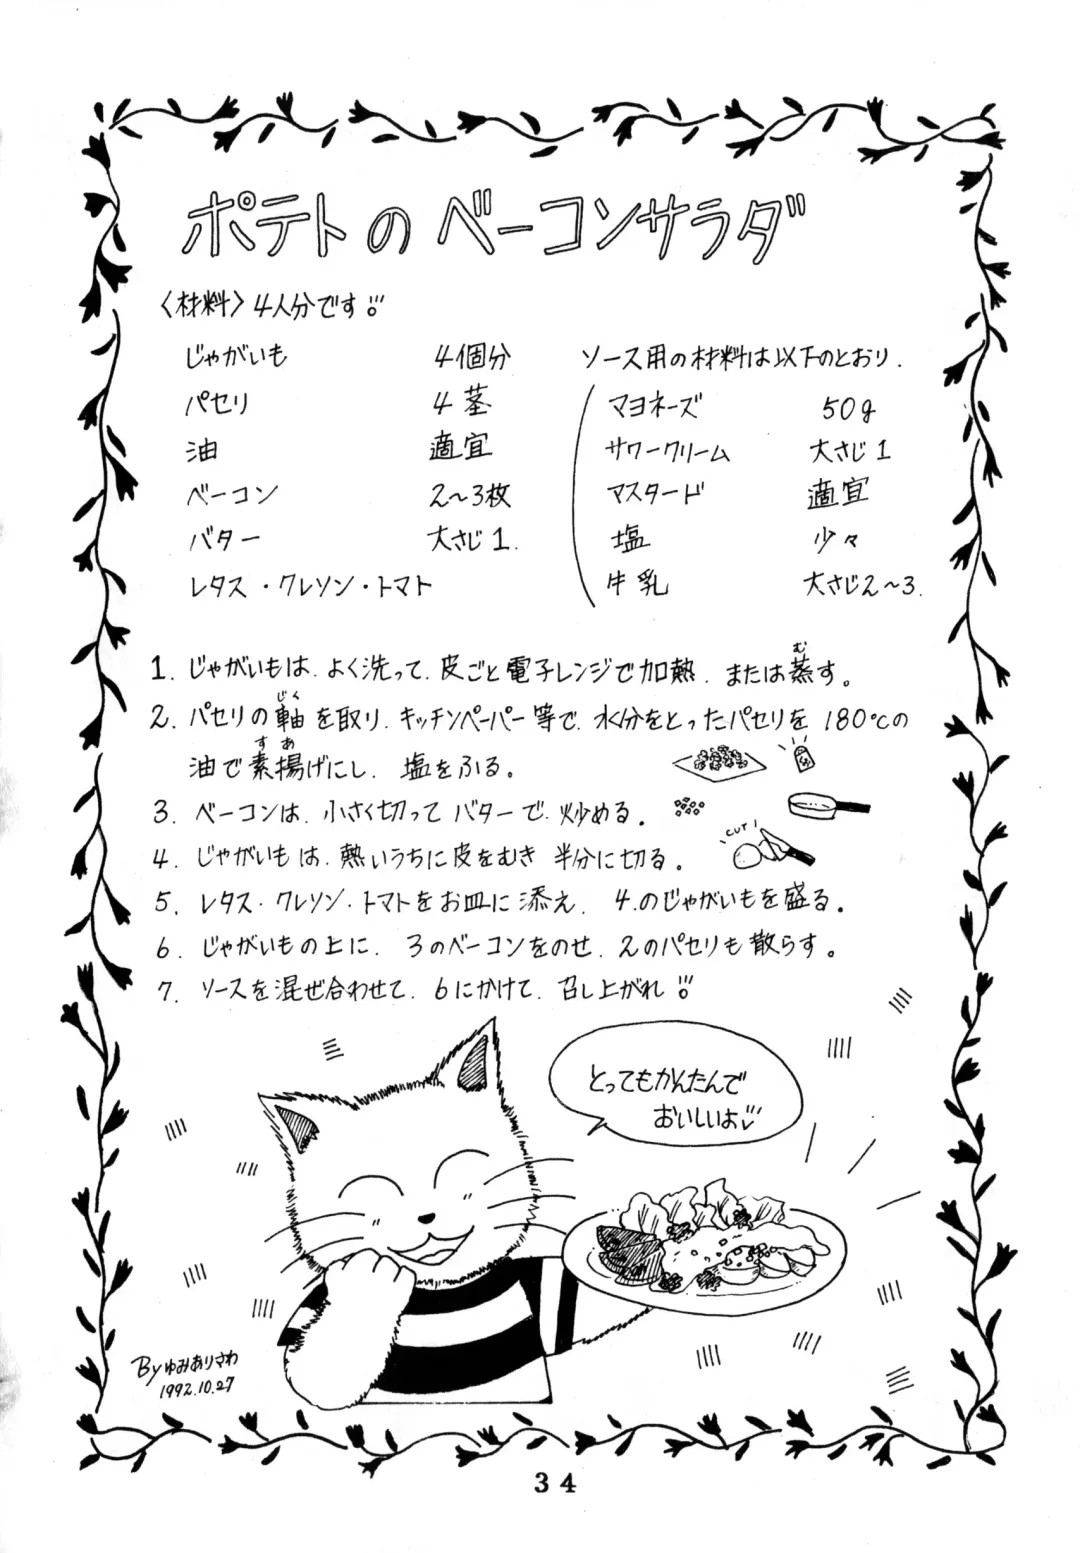 ポテトのベーコンサラダ
〈材料〉4人分です!!
じゃがいも 4個分
パセリ 4茎
油 適宜
ベーコン 2〜3枚
バター 大さじ1.
レタス・クレソン・トマト
ソース用の材料は以下のとおり.
マヨネーズ 50g
サワークリーム 大さじ1
マスタード 適宜
塩 少々
牛乳 大さじ2〜3.
1. じゃがいもは、よく洗って、皮ごと電子レンジで加熱、または蒸す。
む
2. パセリの軸を取り、キッチンペーパー等で、水分をとったパセリを180℃の
じく
油で素揚げにし、塩をふる。
すあ
3. ベーコンは、小さく切ってバターで、炒める。
4. じゃがいもは、熱いうちに皮をむき半分に切る。
CUT!
5. レタス・クレソン・トマトをお皿に添え、4.のじゃがいもを盛る。
6. じゃがいもの上に、3のベーコンをのせ、2のパセリも散らす。
7. ソースを混ぜ合わせて、6にかけて、召し上がれ!!
とってもかんたんで
おいしいよ
By ゆみありさわ
1992.10.27
34